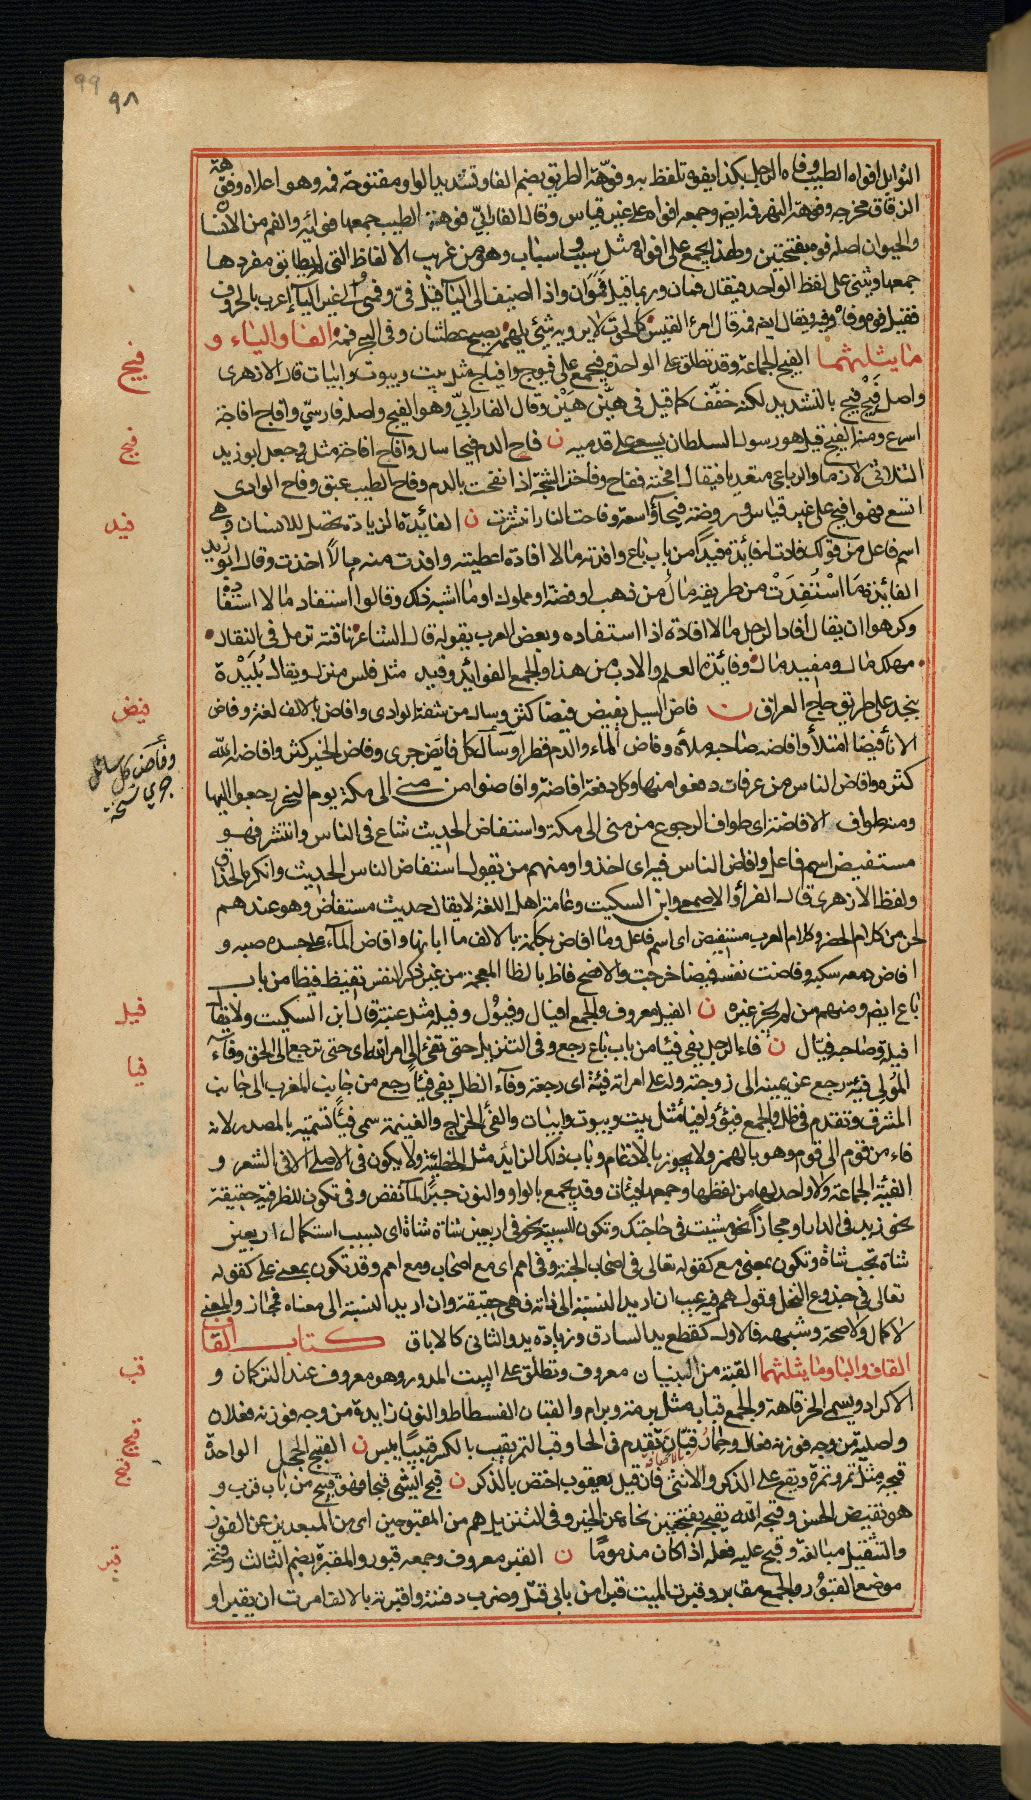 99
٩٨
التوابل افواه الطيب وفاه الرجل بكذا يفوه تلفظ به وفوهة الطريق بضم الفا وتشديد الواو مفتوحة فمه وهو اعلاه وفوهة
الزقاق مخرجه وفوهة النهر فمه ايضا وجمعه افواه على غير قياس وقال الفارابي فوهة الطيب جمعها فوائه والفم من الانسان
والحيوان اصله فوه بفتحتين ولهذا يجمع على افواه مثل سبب واسباب وهو من غريب الالفاظ التي لم يطابق مفردها
جمعها ويثنى على لفظ الواحد فيقال فمان وربما قيل فموان واذا اضيف الى اليآ قيل فيّ وفمي والى غير اليآء اعرب بالحروف
فقيل فوه وفاه وفيه ويقال ايضا فمه قال امرء القيس كالحوت لا يرويه شئ يلهمه يصبح عطشان وفي البحر فمه الفا والياء و
ما يثلثهما الفيج الجماعة وقد تطلق على الواحد فيجمع على فيوج وافياج مثل بيت وبيوت وابيات قال الازهري
واصل فيج فيّج بالتشديد لكنه خفف كما قيل في هيّن هيْن وقال الفارابي وهو الفيج واصله فارسيّ وافاج افاجة
اسرع ومنه الفيج قيل هو رسول السلطان يسعى على قدميه ن فاح الدم فيحا سال وافاح افاحة مثله وجعل ابو زيد
الثلاثي لازما والرباعي متعديا فيقال افحته ففاح وفاحت الشجة اذا نفحت بالدم وفاح الطيب عبق وفاح الوادي
اتسع فهو افيح على غير قياس وروضة فيحآء واسعة وفاحت النار انتشرت ن الفائدة الزيادة تحصل للانسان وهي
اسم فاعل من قولك فادت له فائدة فيدا من باب باع وافدته مالا افادة اعطيته وافدت منه مالاً اخذت وقال ابو زيد
الفائدة ما استفدت من طريفة مال من ذهب او فضة او مملوك او ما اشبه ذلك وقالوا استفاد مالا استفادة
وكرهوا ان يقال افاد الرجل مالا افادة اذا استفاده وبعض العرب يقوله قال الشاعر ناقته ترمل في النقال
مهلك مال ومفيد مال وفائدة العلم والادب من هذا والجمع الفوائد وفيد مثل فلس منزل ويقال بليدة
بنجد على طريق حاج العراق ن فاض السيل يفيض فيضا كثر وسال من شفة الوادي وافاض بالالف لغة وفاض
الاناء فيضا امتلأ وافاضه صاحبه ملأه وفاض الماء والدم قطر او سآل كل فايض جرى وفاض الخير كثر وافاضه اللّه
كثره وافاض الناس من عرفات دفعوا منها وكل دفعة افاضة وافاضوا من منى الى مكة يوم النحر رجعوا اليها
ومنه طواف الافاضة اي طواف الرجوع من منى الى مكة واستفاض الحديث شاع في الناس وانتشر فهو
مستفيض اسم فاعل وافاض الناس فيه اي اخذوا ومنهم من يقول استفاض الناس الحديث وانكره الحذاق
ولفظ الازهري قال الفراء والاصمعي وابن السكيت وعامة اهل اللغة لا يقال حديث مستفاض وهو عندهم
لحن من كلام الحضر وكلام العرب مستفيض اي اسم فاعل وما افاض بكلمة بالالف ما ابانها وافاض المآء على جسده صبه و
افاض دمعه سكبه وفاضت نفسه فيضا خرجت والافصح فاظ بالظا المعجمة من غير ذكر النفس يفيظ فيظا من باب
باع ايضا ومنهم من لم يجز غيره ن الفيل معروف والجمع افيال وفيول وفيلة مثل عنبة قال ابن السكيت ولا يقال
افيلة وصاحبه فيّال ن فاء الرجل يفي فيئا من باب باع رجع وفي التنزيل حتى تفئ الى امر الله اي حتى ترجع الى الحق وفآء
المولي فيئة رجع عن يمينه الى زوجته وله على امراته فيئة اي رجعة وفآء الظل يفي فيئا رجع من جانب المغرب الى جانب
المشرق وتقدم في ظل والجمع فيوء وافياء مثل بيت وبيوت وابيات والفئ الخراج والغنيمة سمي فيئا تسمية بالمصدر لانه
فاء من قوم الى قوم وهو بالهمز ولا يجوز بالادغام وباب ذلك الزائد مثل الخطيئة ولا يكون في الاصلي الا في الشعر و
الفئة الجماعة ولا واحد لها من لفظها وجمعها فئات وقد يجمع بالواو والنون جبرا لما نقص وفي تكون للظرفية حقيقة
نحو زيد في الدار او مجازا نحو مشيت في حاجتك وتكون للسببية نحو في اربعين شاة شاة اي بسبب استكمال اربعين
شاة تجب شاة وتكون بمعنى مع كقوله تعالى في اصحاب الجنة وفي امم اي مع اصحاب ومع امم وقد تكون بمعنى على كقوله
تعالى في جذوع النخل وقولهم فيه عيب ان اريد النسبة الى ذاته فهي حقيقة وان اريد النسبة الى معناه فمجاز والمعنى
لا كمال ولا صحة وشبهه فالاول كقطع يد السارق وزيادة يد والثاني كالاباق كتاب القاف
القاف والبا وما يثلثهما القبة من البنيان معروف وتطلق على البيت المدور وهو معروف عند التركمان و
الاكراد ويسمى الخرقاهة والجمع قباب مثل برمة وبرام والقبان القسطاط والنون زايدة من وجه فوزنه فعلان
واصلية من وجه فوزنه فعال وحمار قبان تقدم في الحا وقب التمر يقب بالكسر قبيبا يبس ن القبج الحجل الواحدة
قبجة مثل تمر وتمرة ويقع على الذكر والانثى فان قيل يعقوب اختص بالذكر ن قبح الشئ قبحا فهو قبيح من باب قرب و
هو نقيض الحسن وقبحه اللّه يقبحه بفتحتين نحاه عن الخير وفي التنزيل هم من المقبوحين اي من المبعدين عن الفوز
والتثقيل مبالغة وقبح عليه فعله اذا كان مذموما ن القبر معروف وجمعه قبور والمقبرة بضم الثالث وفتحه
موضع القبور والجمع مقابر وقبرت الميت قبرا من بابي قتل وضرب دفنته واقبرته بالالف امرت ان يقبر او
فيج
فيح
فيد
فيض
وفاض كل سائل
جرى نسخة
فيل
فيا
قب
قبج
قبح
قبر